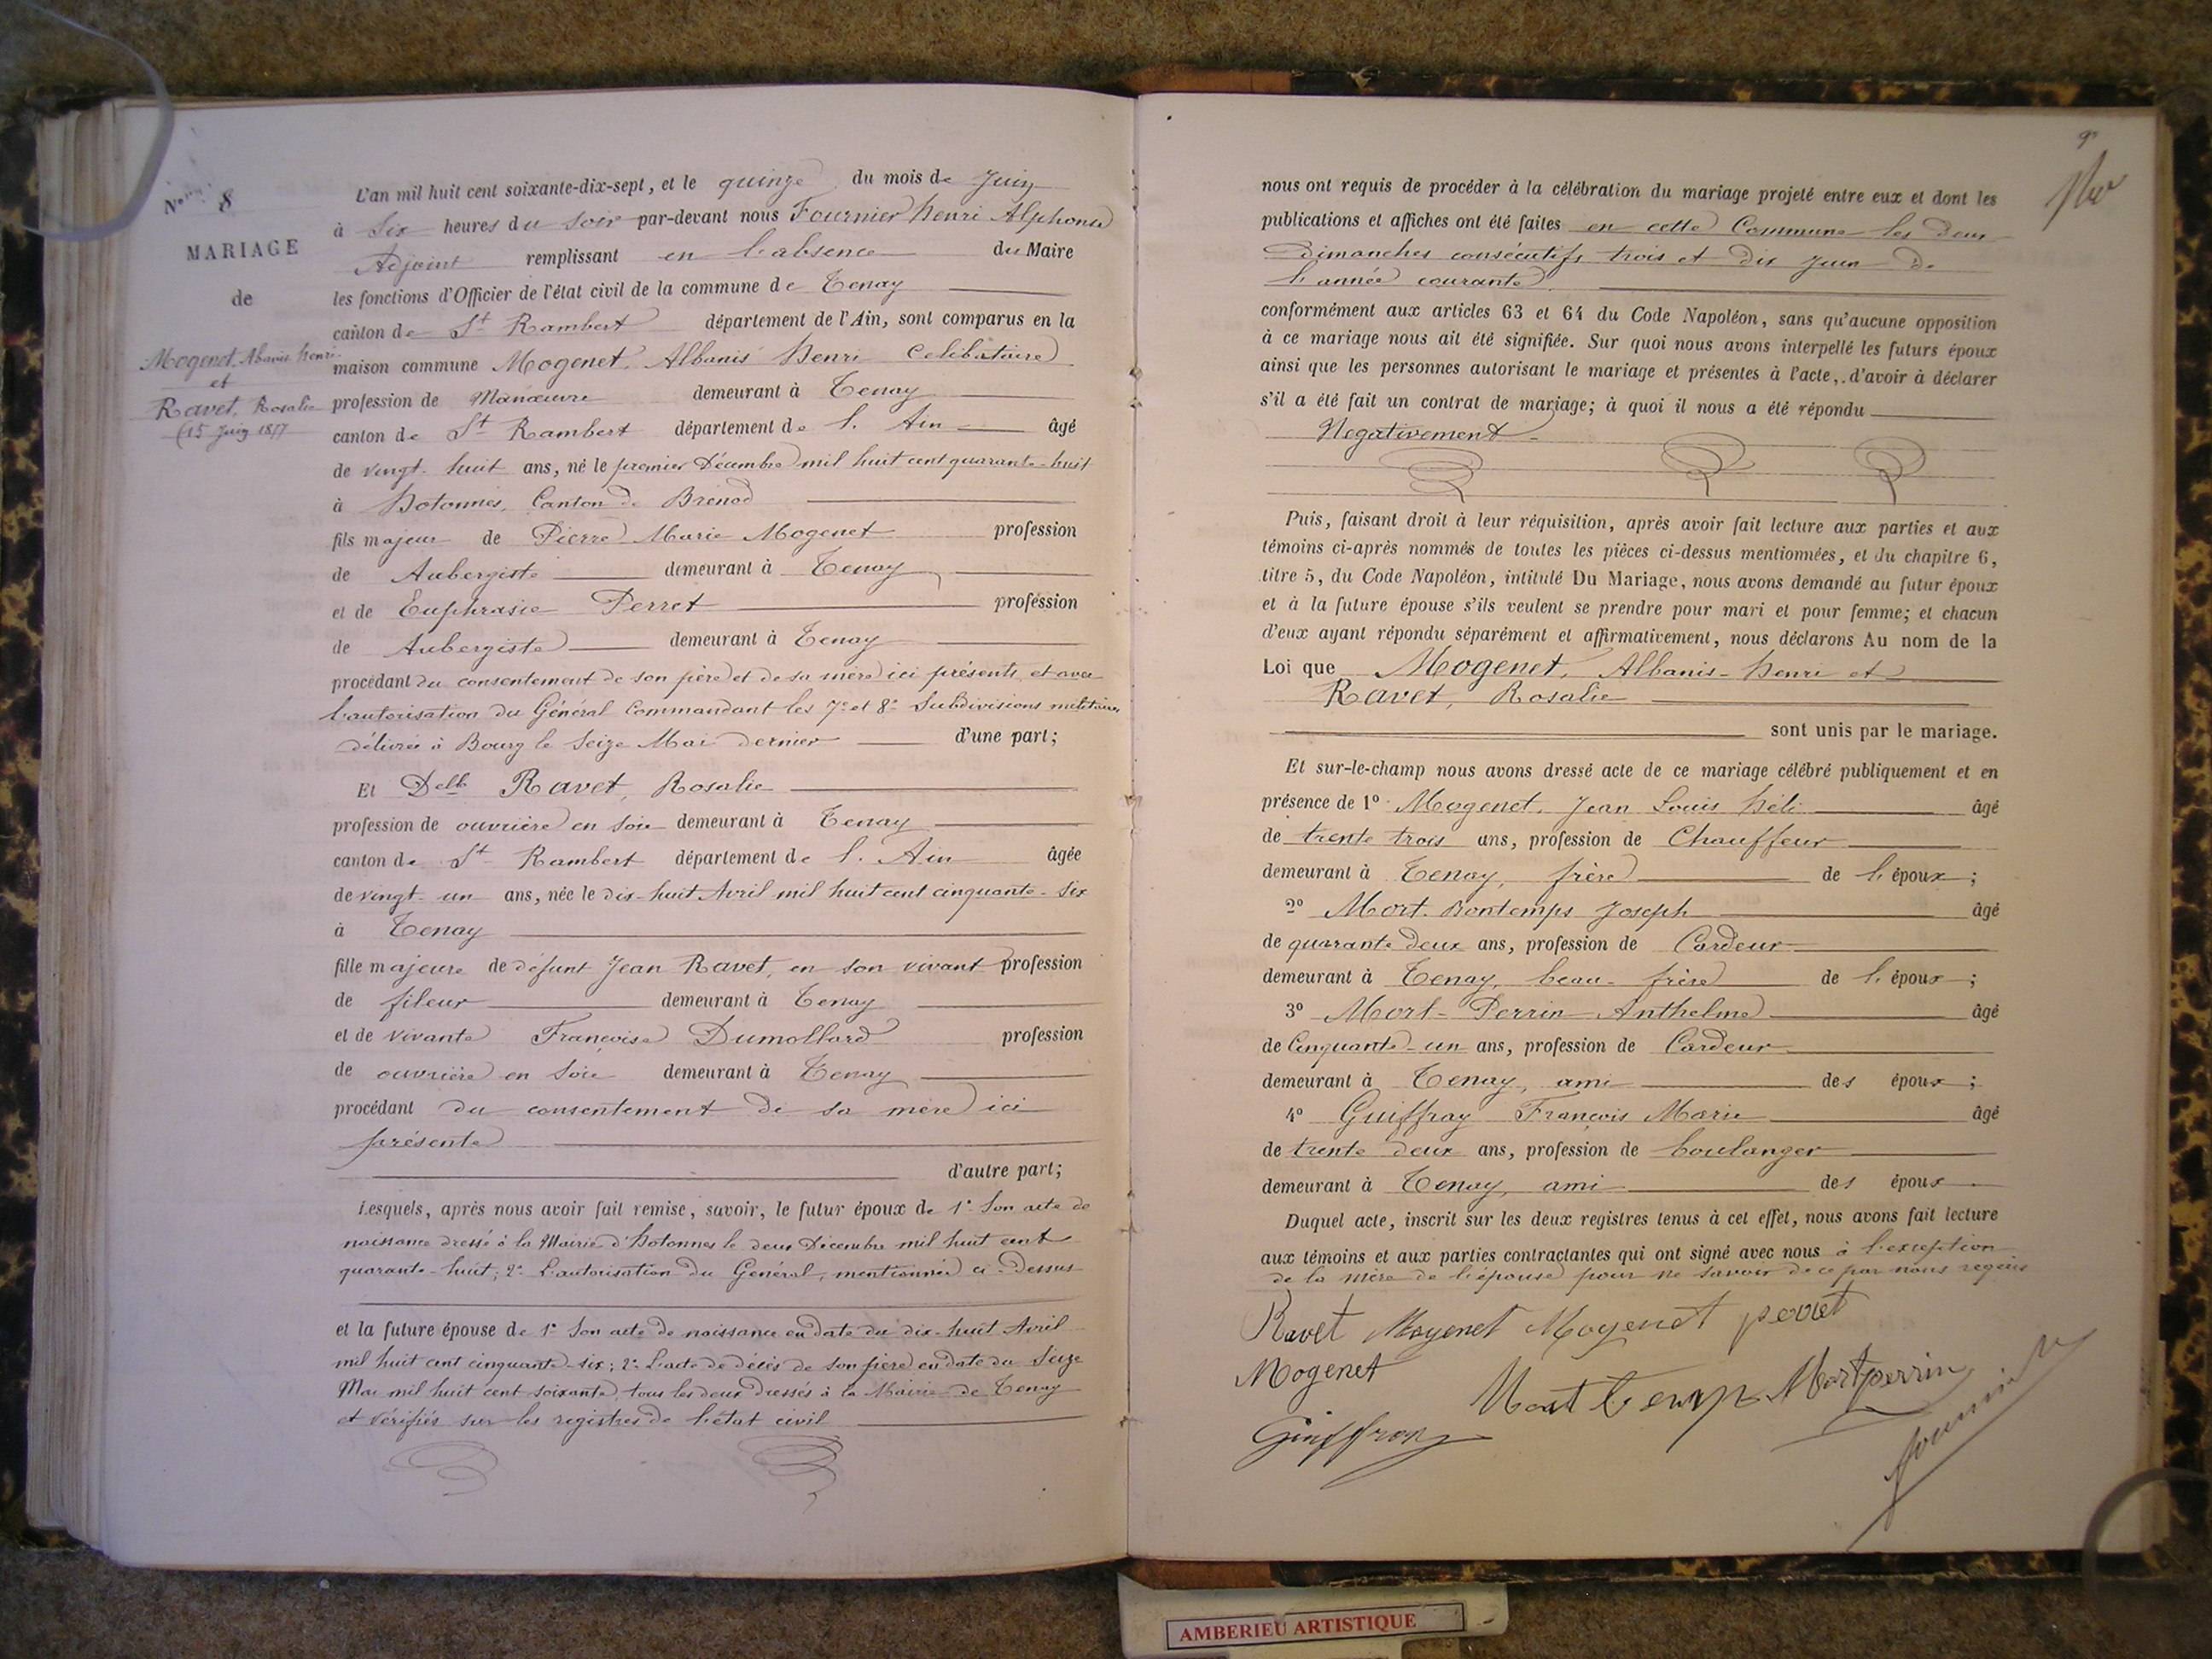 N° 8
MARIAGE
de
Mogenet Abanis Henri
et
Ravet, Rosalie
(15 Juin 1877
L'an mil huit cent soixante-dix-sept, et le quinze du mois de Juin
à Six heures du soir par-devant nous Fournier Henri Alphonse
Adjoint remplissant en l'absence du Maire
les fonctions d'Officier de l'état civil de la commune de Tenay
canton de St Rambert département de l'Ain, sont comparus en la
maison commune Mogenet, Albanis Henri Celibataire
profession de Manœuvre demeurant à Tenay
canton de St Rambert département de l'Ain âgé
de vingt-huit ans, né le premier Décembre mil huit cent quarante-huit
à Hotonnes, Canton de Brénod
fils majeur de Pierre Marie Mogenet profession
de Aubergiste demeurant à Tenay,
et de Euphrasie Perret profession
de Aubergiste demeurant à Tenay
procédant du consentement de son père et de sa mère ici présents et avec
l'autorisation du Général Commandant les 7e et 8e Subdivisions militaires
délivrée à Bourg le Seize Mai dernier d'une part;
Et Delle Ravet, Rosalie
profession de ouvrière en soie demeurant à Tenay
canton de St Rambert département de l'Ain âgée
de vingt-un ans, née le dix-huit Avril mil huit cent cinquante-six
à Tenay
fille majeure de défunt Jean Ravet, en son vivant profession
de fileur demeurant à Tenay
et de vivante Françoise Dumollard profession
de ouvrière en soie demeurant à Tenay
procédant du consentement de sa mère ici
présente
d'autre part;
Lesquels, après nous avoir fait remise, savoir, le futur époux de 1° Son acte de
naissance dressé à la Mairie d'Hotonnes le deux Décembre mil huit cent
quarante-huit; 2° L'autorisation du Général, mentionnée ci-dessus
et la future épouse de 1° Son acte de naissance en date du dix-huit Avril
mil huit cent cinquante-six; 2° L'acte de décès de son père en date du Seize
Mai mil huit cent soixante, tous les deux dressés à la Mairie de Tenay
et vérifiés sur les registres de l'état civil
nous ont requis de procéder à la célébration du mariage projeté entre eux et dont les
publications et affiches ont été faites en cette Commune les deux
Dimanches consécutifs trois et dix Juin de
l'année courante
conformément aux articles 63 et 64 du Code Napoléon, sans qu'aucune opposition
à ce mariage nous ait été signifiée. Sur quoi nous avons interpellé les futurs époux
ainsi que les personnes autorisant le mariage et présentes à l'acte, d'avoir à déclarer
s'il a été fait un contrat de mariage; à quoi il nous a été répondu
Negativement
Puis, faisant droit à leur réquisition, après avoir fait lecture aux parties et aux
témoins ci-après nommés de toutes les pièces ci-dessus mentionnées, et du chapitre 6,
titre 5, du Code Napoléon, intitulé Du Mariage, nous avons demandé au futur époux
et à la future épouse s'ils veulent se prendre pour mari et pour femme; et chacun
d'eux ayant répondu séparément et affirmativement, nous déclarons Au nom de la
Loi que Mogenet, Albanis-Henri et
Ravet, Rosalie
sont unis par le mariage.
Et sur-le-champ nous avons dressé acte de ce mariage célébré publiquement et en
présence de 1° Mogenet, Jean Louis Héli âgé
de trente trois ans, profession de Chauffeur
demeurant à Tenay, frère de l'époux;
2° Mort-Bontemps Joseph âgé
de quarante deux ans, profession de Cardeur
demeurant à Tenay, beau-frère de l'époux;
3° Mort-Perrin Anthelme âgé
de Cinquante-un ans, profession de Cardeur
demeurant à Tenay, ami des époux;
4° Guiffray François Marie âgé
de trente deux ans, profession de boulanger
demeurant à Tenay, ami des époux
Duquel acte, inscrit sur les deux registres tenus à cet effet, nous avons fait lecture
aux témoins et aux parties contractantes qui ont signé avec nous à l'exception
de la mère de l'épouse pour ne savoir de ce par nous requis
Ravet Mogenet Mogenet perret
Mogenet
Mortperrin
Guiffray
fournier
AMBERIEU ARTISTIQUE